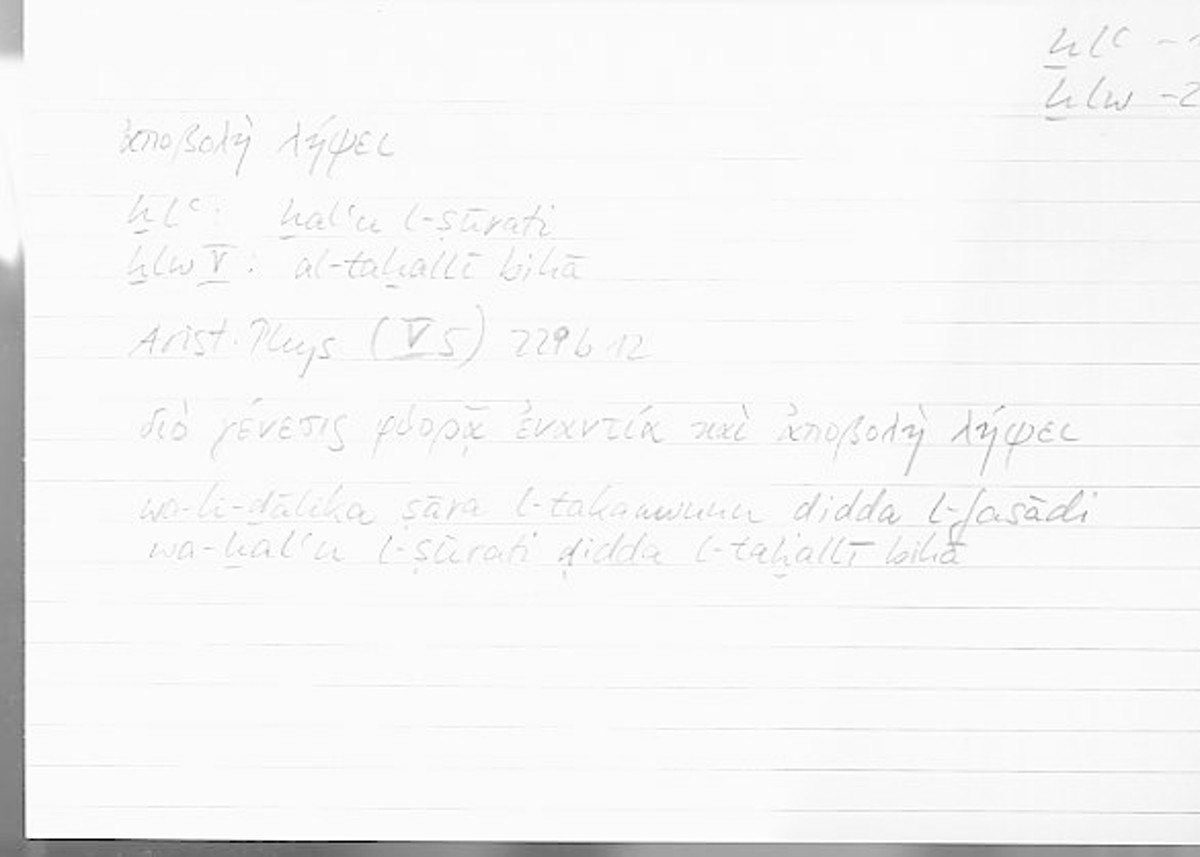 ḫlʿ -1
ḫlw -2
ἀποβολὴ λήψει
ḫlʿ: ḫalʿu l-ṣūrati
ḫlw V: al-taḫallī bihā
Arist. Phys (V 5) 229b 12
διὸ γένεσις φθορᾷ ἐναντία καὶ ἀποβολὴ λήψει
wa-li-ḏālika ṣāra l-takawwunu didda l-fasādi
wa-ḫalʿu l-ṣūrati ḍidda l-taḫallī bihā